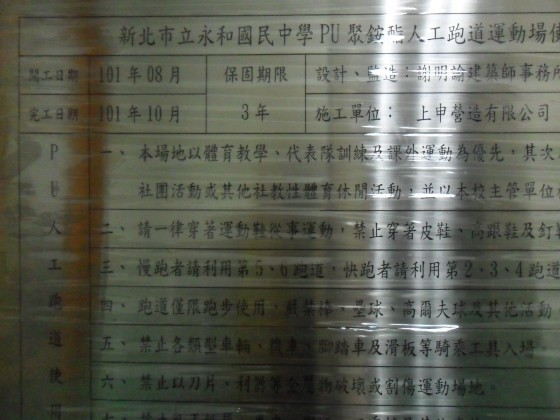 新北市立永和國民中學PU聚銨酯人工跑道運動場使
開工日期 101年08月 保固期限 設計、監造：謝明諭建築師事務所
完工日期 101年10月 3年 施工單位： 上申營造有限公司
PU人工跑道使用
一、本場地以體育教學、代表隊訓練及課外運動為優先，其次
社團活動或其他社教性體育休閒活動，並以本校主管單位
二、請一律穿著運動鞋從事運動，禁止穿著皮鞋、高跟鞋及釘
三、慢跑者請利用第5、6跑道，快跑者請利用第2、3、4跑道
四、跑道僅限跑步使用，嚴禁棒、壘球、高爾夫球及其他活動
五、禁止各類型車輛，機車、腳踏車及滑板等騎乘工具入場。
六、禁止以刀片、利器等公廢物破壞或割傷運動場地。